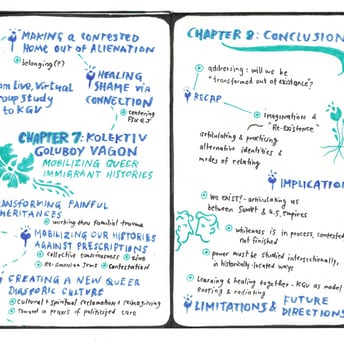 MAKING A CONTESTED
HOME OUT OF ALIENATION
belonging (?)
HEALING
SHAME VIA
CONNECTION
om Live, Virtual
roup Study
to KGV
centering
CHAPTER 7: KOLEKTIV
GOLUBOY VAGON
MOBILIZING QUEER
IMMIGRANT HISTORIES
ANSFORMING PAINFUL
HERITANCES
working thru familial trauma
MOBILIZING OUR HISTORIES
AGAINST PRESCRIPTIONS
collective consciousness
contestation
CREATING A NEW QUEER
DIASPORIC CULTURE
cultural + spiritual reclamation + reimagining
toward a praxis of politicized care
CHAPTER 8: CONCLUSION
addressing: will we be
"transformed out of existence"?
RECAP
imagination &
"Re-existence"
articulating & practicing
alternative identities &
modes of relating
IMPLICATION
We exist! - articulating us
between Soviet & U.S. Empires
whiteness is in process, contested
not finished
power must be studied intersectionally,
in historically-located ways
Learning & healing together - KGV as model
Rooting & radiating
LIMITATIONS & FUTURE
DIRECTIONS